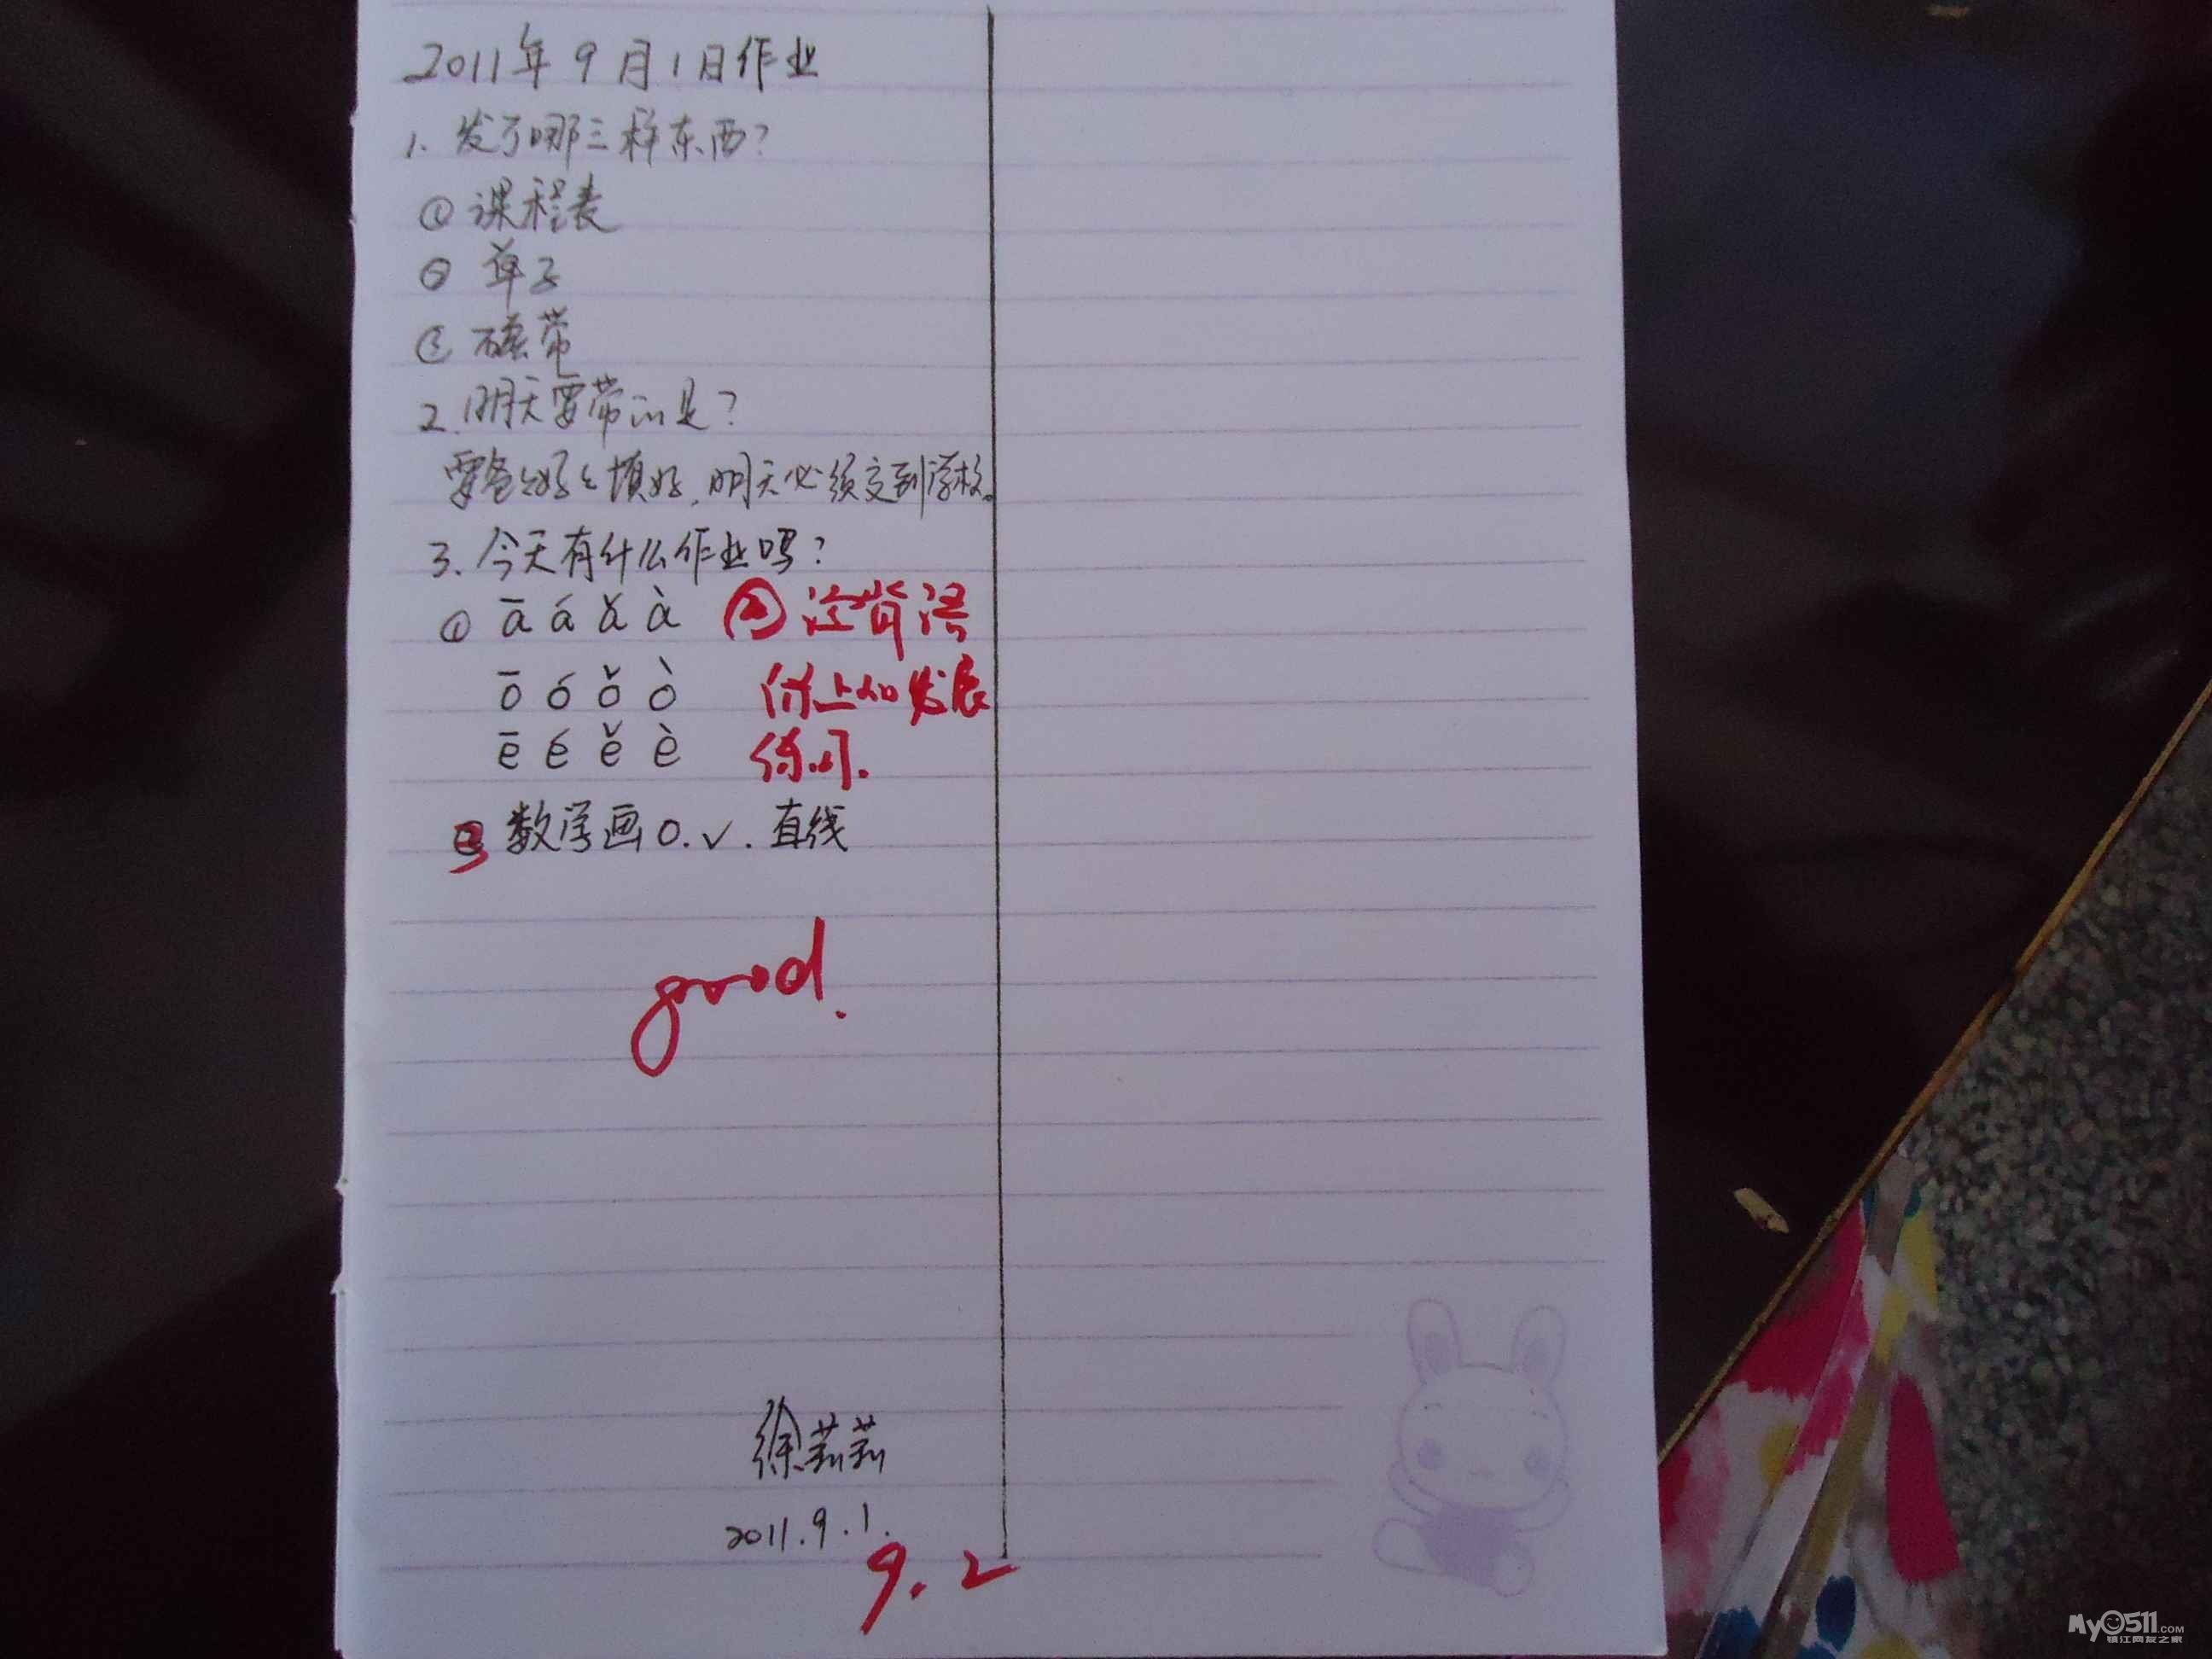 2011年9月1日作业
1. 发了哪三样东西?
① 课程表
② 单子
③ 磁带
2. 明天要带的是?
要爸爸妈妈填好,明天必须交到学校。
3. 今天有什么作业吗?
① ā á ǎ à
ō ó ǒ ò
ē é ě è
② 没背
上的发展
练习.
③ 数学画O.√.直线
good.
徐莉莉
2011.9.1.
9.2
My0511.COM
镇江网友之家